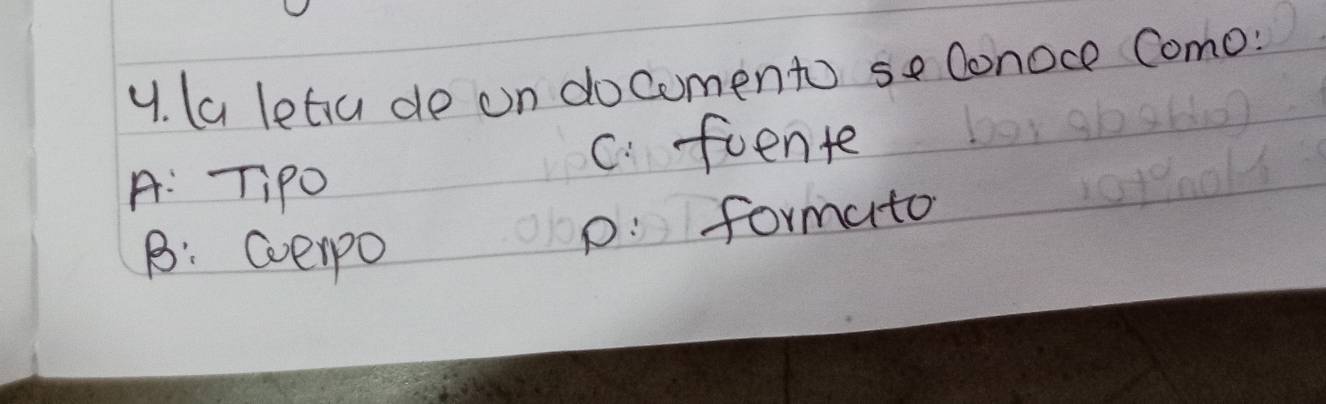 4. la letra de un documento se conoce como:
A: Tipo
C: fuente
B: Cuerpo
D: formato